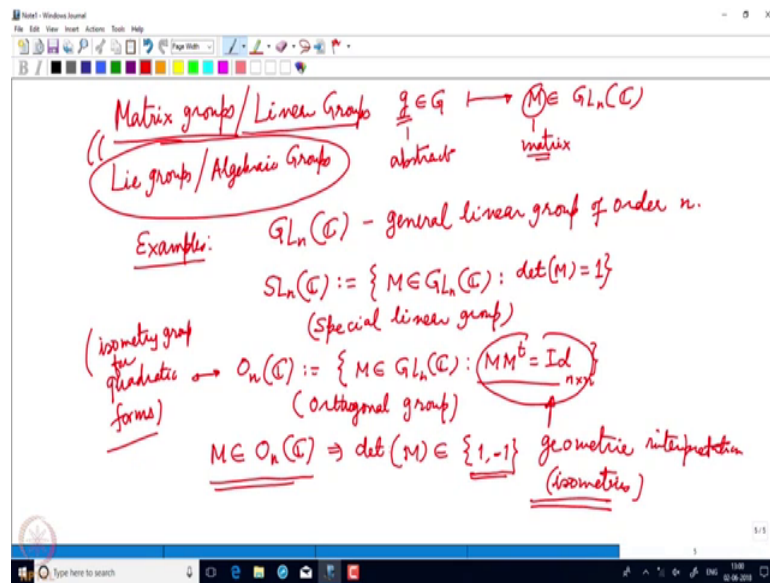 Note1 - Windows Journal
File Edit View Insert Actions Tools Help
Page Width
B I
Matrix groups/Linear Groups g ∈ G ⟼ M ∈ GLₙ(ℂ)
abstract matrix
((
Lie groups/Algebraic Groups
Examples: GLₙ(ℂ) - general linear group of order n.
SLₙ(ℂ) := { M ∈ GLₙ(ℂ) : det(M) = 1 }
(Special linear group)
(isometry group
for
quadratic
forms)
→ Oₙ(ℂ) := { M ∈ GLₙ(ℂ) : MMᵗ = Id n×n }
(Orthogonal group)
M ∈ Oₙ(ℂ) ⇒ det(M) ∈ {1, -1} geometric interpretation
(isometries)
5/5
5
Type here to search
ENG
13:00
02-06-2018